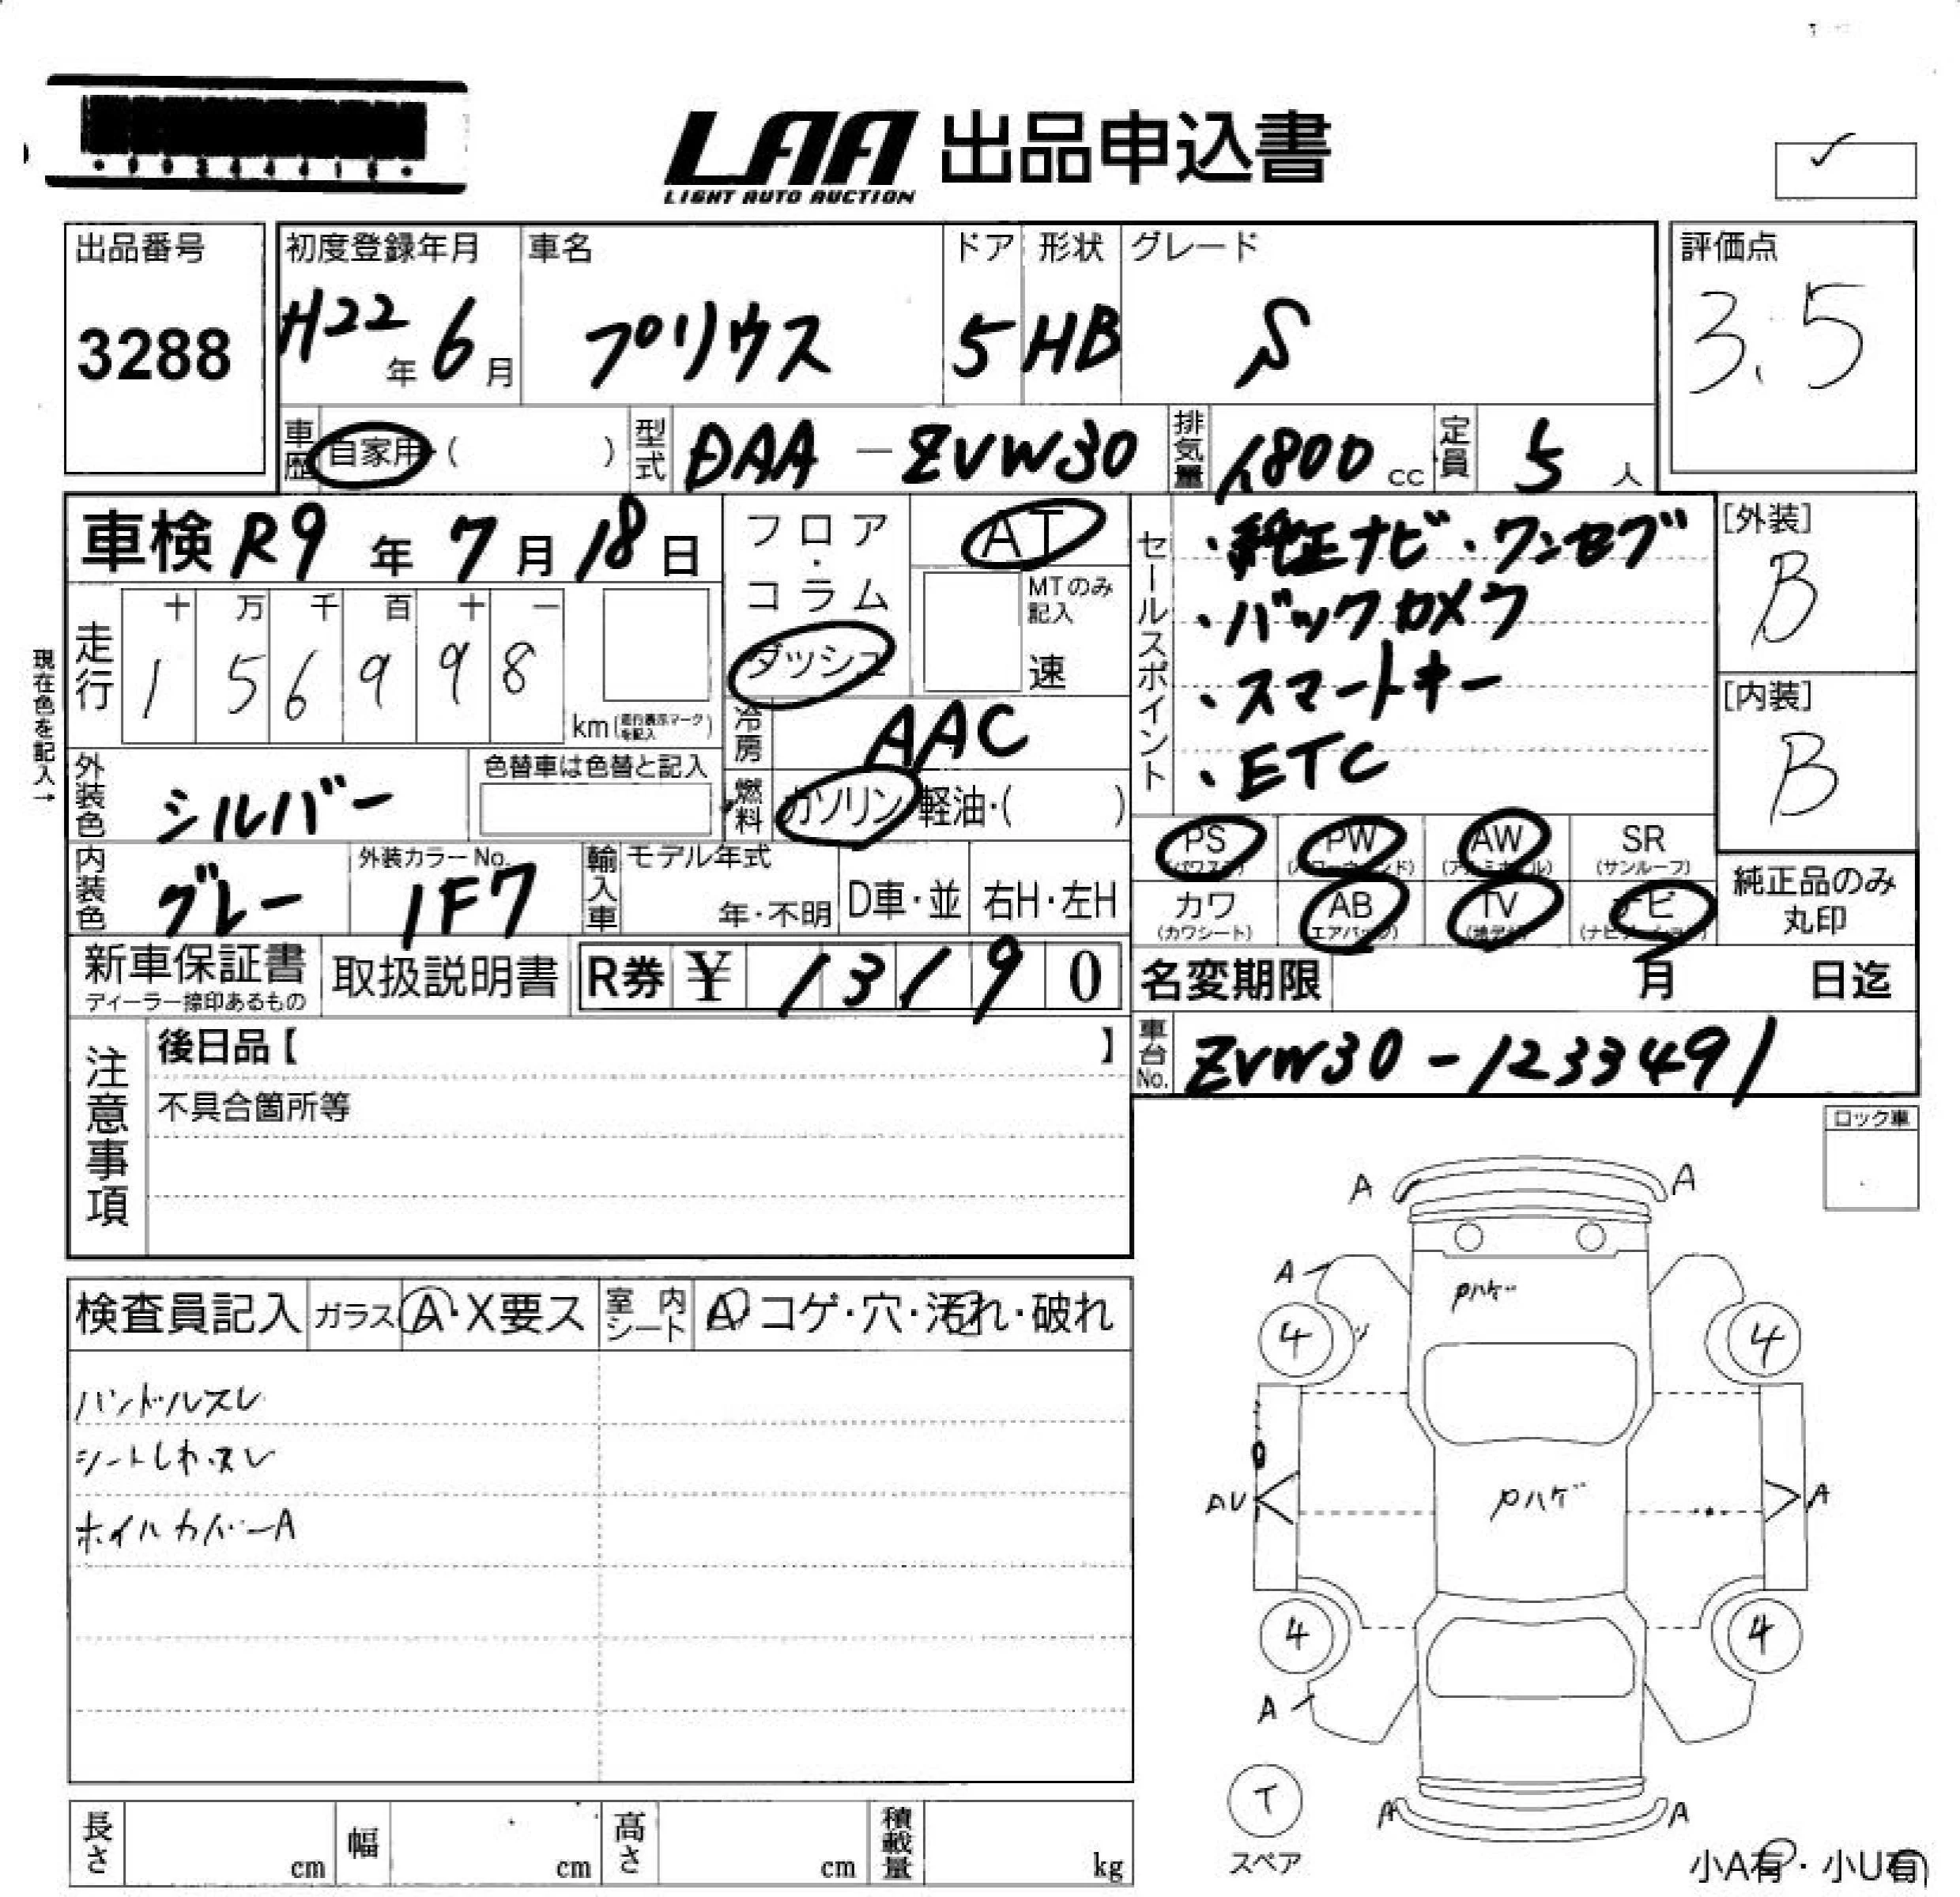 LAA 出品申込書
LIGHT AUTO AUCTION
出品番号
3288
初度登録年月
H22年 6月
車名
プリウス
ドア
5
形状
HB
グレード
S
評価点
3.5
車歴 自家用・( )
型式 DAA-ZVW30
排気量 1800 cc
定員 5 人
車検 R9年 7月 18日
フロア・コラム
ダッシュ
AT
MTのみ記入
速
現在色を記入→
走行
十 万 千 百 十 一
1 5 6 9 9 8
km (走行表示マークを記入)
冷房 AAC
燃料 ガソリン・軽油・( )
外装色 シルバー
色替車は色替と記入
内装色 グレー
外装カラーNo. 1F7
輸入車 モデル年式
年・不明
D車・並
右H・左H
セールスポイント
・純正ナビ・ワンセグ
・バックカメラ
・スマートキー
・ETC
[外装]
B
[内装]
B
PS (パワステ)
PW (パワーウィンド)
AW (アルミホイール)
SR (サンルーフ)
カワ (カワシート)
AB (エアバッグ)
TV (地デジ)
ナビ (ナビゲーション)
純正品のみ丸印
新車保証書
ディーラー捺印あるもの
取扱説明書
R券 ¥ 13190
名変期限 月 日迄
車台No. ZVW30-1233491
注意事項
後日品【 】
不具合箇所等
ロック車
検査員記入
ガラス A・X要ス
室内シート A コゲ・穴・汚れ・破れ
ハンドルスレ
シートしわ・スレ
ホイルカバーA
A A
A
Pハゲ
4 4
AU
Pハゲ
A
4 4
A
T
スペア
A A
小A有・小U有
長さ cm
幅 cm
高さ cm
積載量 kg